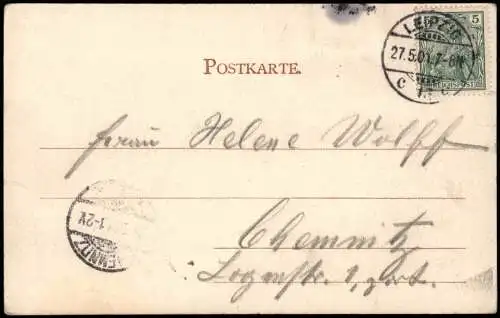 LEIPZIG
5
27.5.01.7-8N.
REICHSPOST
POSTKARTE.
Frau Helene Wolff
1-2V.
CHEMNITZ
Chemnitz
Logenstr. 1, prt.